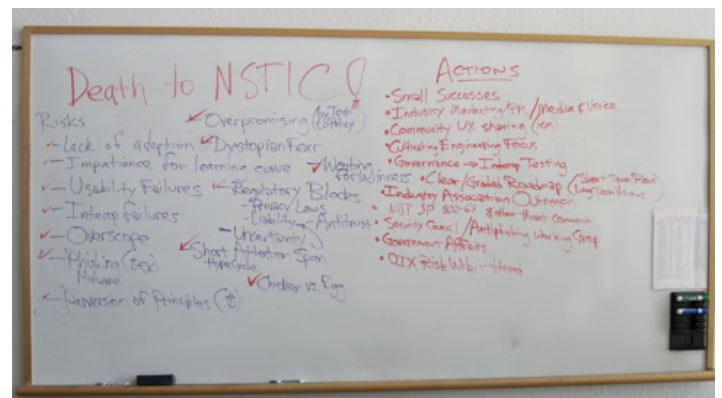 Death to NSTIC!
Risks
Lack of adoption
Impatience for learning curve
Usability Failures
Interop failures
Overscope
Phishing
Malware
Perversion of Principles
Overpromising (by Tech
Dystopian Fear
Waiting
for Winners
Regulatory Blocks
- Privacy Laws
- Liability
Antitrust
- Uncertainty
Short Attention Span
Hype Cycle
Chicken vs. Egg
ACTIONS
• Small Successes
• Industry Marketing/PR/Media & Voice
• Community UX sharing
• Cultivating Engineering Focus
• Governance → Interop Testing
• Clear/Graded Roadmap (Short Term Plans
Long Term Visions
• Industry Association Outreach
• NIST SP 800-63 & other threat comment
• Security Council/Antiphishing Working Group
• Government Affairs
• OIX Risk Wiki - threat